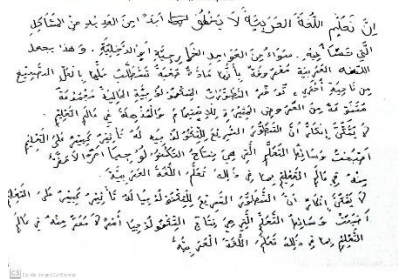 إنّ تعليم اللغة العربية لا يخلو أبدًا من العديد من المشاكل
التي تصادفه. سواء من العوامل الخارجية أو الداخلية. وهذا يجعل
اللغة العربية معروفة بأنها مادة صعبة تتطلب
من ناحية أخرى، التطورات التكنولوجية الحالية مجموعة
متنوعة من العروض المثيرة للاهتمام في عالم التعليم
لا يمكن إنكار أن التطور السريع للتكنولوجيا له تأثير كبير على التعليم
أصبحت وسائل التعلم التي هي نتاج التكنولوجيا أمرًا لا مفر
منه في عالم التعليم بما في ذلك تعلم اللغة العربية
لا يمكن إنكار أن التطور السريع للتكنولوجيا له تأثير كبير على التعليم
أصبحت وسائل التعلم التي هي نتاج التكنولوجيا أمر لا مفر منه في عالم
التعليم بما في ذلك تعلم اللغة العربية